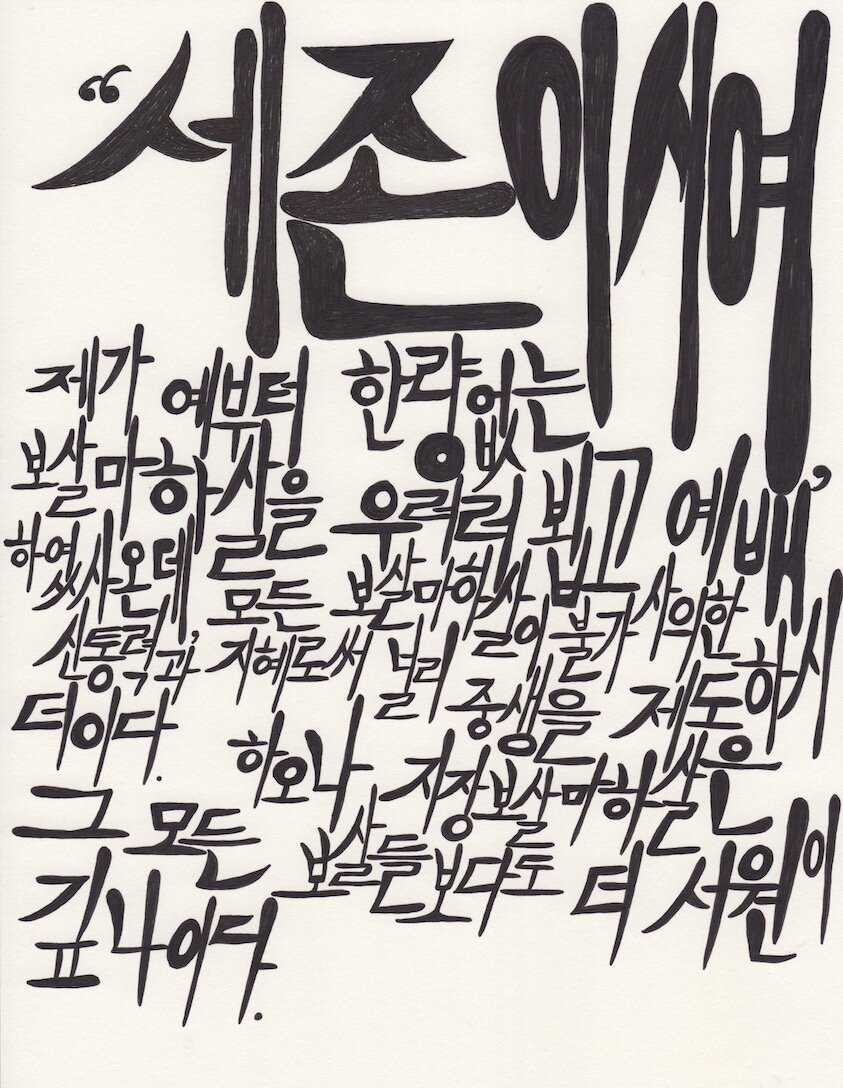 “세존이시여
제가 예부터 한량없는
보살마하살을 우러러 뵙고 예배’
하였사온데 모든 보살마하살이 불가사의한
신통력과’ 지혜로써 널리 중생을 제도하시
더이다. 하오나 지장보살마하살은
그 모든 보살들보다도 더 서원이
깊나이다.